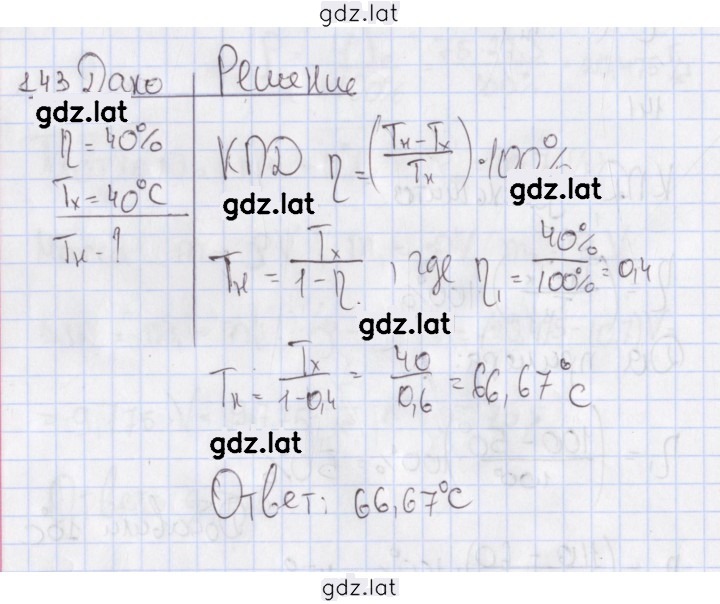 gdz.lat
143 Дано Решение
gdz.lat
η = 40%
Tx = 40°C
Tн - ?
КПД η = ((Tн - Tx) / Tн) · 100%
gdz.lat
gdz.lat
Tн = Tx / (1 - η₁) , где η₁ = 40% / 100% = 0,4
gdz.lat
Tн = Tx / (1 - 0,4) = 40 / 0,6 = 66,67°C
gdz.lat
Ответ: 66,67°C
gdz.lat